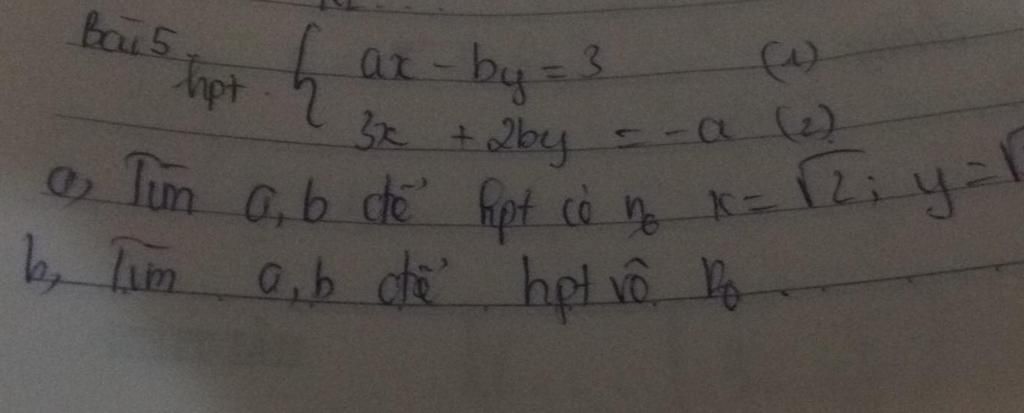 Bài 5.
hpt { ax - by = 3 (1)
3x + 2by = -a (2)
a, Tìm a, b để hpt có no x = √2; y = √
b, Tìm a, b để hpt vô no